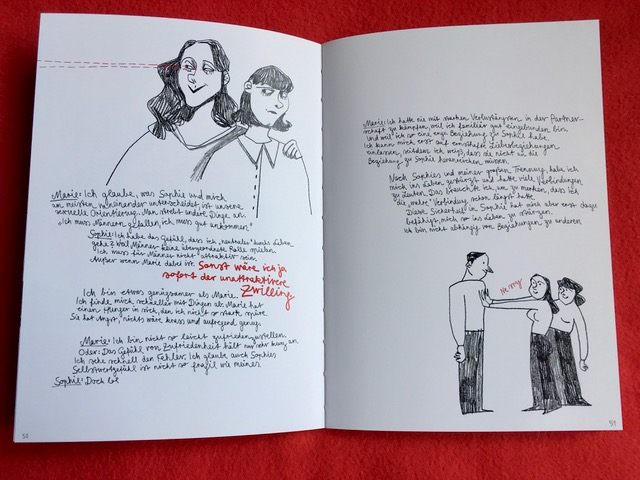 Marie: Ich glaube, was Sophie und mich
am meisten voneinander unterscheidet, ist unsere
sexuelle Orientierung. Man strebt andere Dinge an.
„Ich muss Männern gefallen, ich muss gut ankommen."
Sophie: Ich habe das Gefühl, dass ich „neutraler" durchs Leben
gehe, weil Männer keine übergeordnete Rolle spielen.
Ich muss für Männer nicht attraktiv sein.
Außer wenn Marie dabei ist. Sonst wäre ich ja
sofort der unattraktivere
Zwilling
Ich bin etwas genügsamer als Marie.
Ich finde mich schneller mit Dingen ab. Marie hat
einen Hunger in sich, den ich nicht so stark spüre.
Sie hat Angst, nichts wäre krass und aufregend genug.
Marie: Ich bin nicht so leicht zufriedenzustellen.
Oder: Das Gefühl von Zufriedenheit hält nur sehr kurz an.
Ich sehe schnell den Fehler. Ich glaube auch Sophies
Selbstwertgefühl ist nicht so fragil wie meines
Sophie: Doch
Marie: Ich hatte nie mit starken Verlustängsten in der Partner-
schaft zu kämpfen, weil ich familiär gut eingebunden bin.
Und weil ich so eine enge Beziehung zu Sophie habe.
Ich kann mich erst auf ernsthafte Liebesbeziehungen
einlassen, seitdem ich weiß, dass sie nicht an die
Beziehung zu Sophie heranreichen müssen.
Nach Sophies und meiner großen Trennung habe ich
mich ins Leben gestürzt und hatte viele Verbindungen
zu Leuten. Das brauchte ich, um zu merken, dass ich
„die mehr" Verbindung schon längst hatte.
Diese Sicherheit in Sophie hat mich aber erst dazu
befähigt, mich so ins Leben zu stürzen.
Ich bin nicht abhängig von Beziehungen zu anderen
51